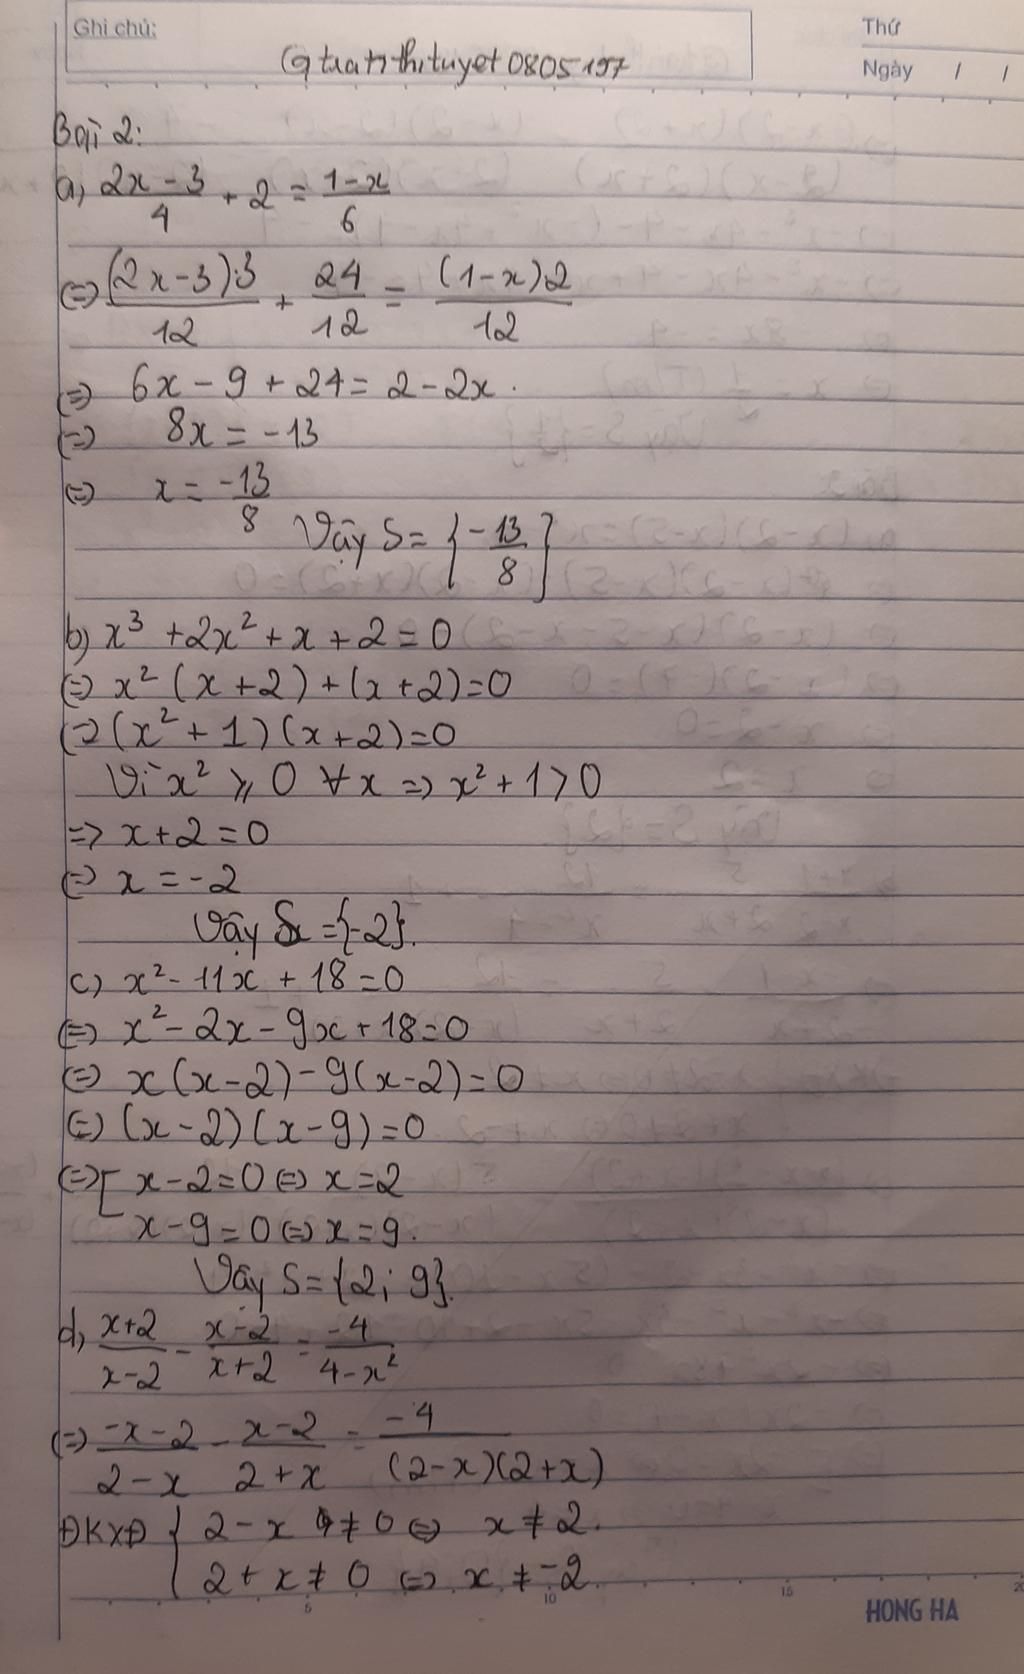 Ghi chú:
Thứ
@tranthituyet0805197
Ngày / /
Bài 2:
a, (2x - 3)/4 + 2 = (1 - x)/6
<=> (2x - 3).3/12 + 24/12 = (1 - x)2/12
<=> 6x - 9 + 24 = 2 - 2x.
<=> 8x = -13
<=> x = -13/8
Vậy S = {-13/8}
b) x³ + 2x² + x + 2 = 0
<=> x² (x + 2) + (x + 2) = 0
<=> (x² + 1) (x + 2) = 0
Vì x² ⩾ 0 ∀x => x² + 1 > 0
=> x + 2 = 0
<=> x = -2
Vậy S = {-2}.
c) x² - 11x + 18 = 0
<=> x² - 2x - 9x + 18 = 0
<=> x (x - 2) - 9(x - 2) = 0
<=> (x - 2) (x - 9) = 0
<=> [ x - 2 = 0 <=> x = 2
x - 9 = 0 <=> x = 9.
Vậy S = {2; 9}.
d, (x + 2)/(x - 2) - (x - 2)/(x + 2) = -4/(4 - x²)
<=> (-x - 2)/(2 - x) - (x - 2)/(2 + x) = -4/((2 - x)(2 + x))
ĐKXĐ { 2 - x ≠ 0 <=> x ≠ 2.
2 + x ≠ 0 <=> x ≠ -2.
5 10 15 20
HONG HA